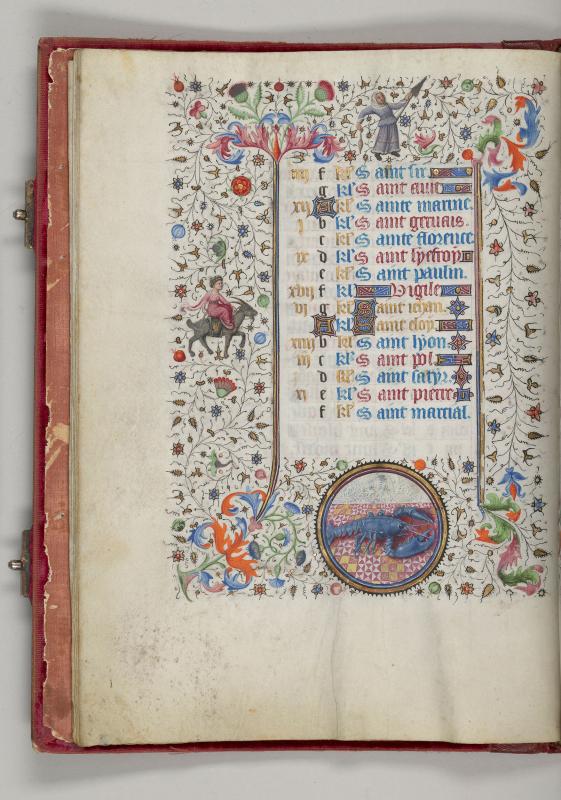 iiij f kl̃ Saint sir
g kl̃ Saint auit
xij A kl̃ Sainte marine.
i b kl̃ Saint geruais.
c kl̃ Sainte florence
ix d kl̃ Saint lyefroy
e kl̃ Saint paulin.
xvij f kl̃ Vigile
vi g kl̃ Saint iehan.
A kl̃ Saint eloy.
xiiij b kl̃ Saint lyon.
iij c kl̃ Saint pol.
d kl̃ Saint satyr.
xi e kl̃ Saint pierre
f kl̃ Saint martial.